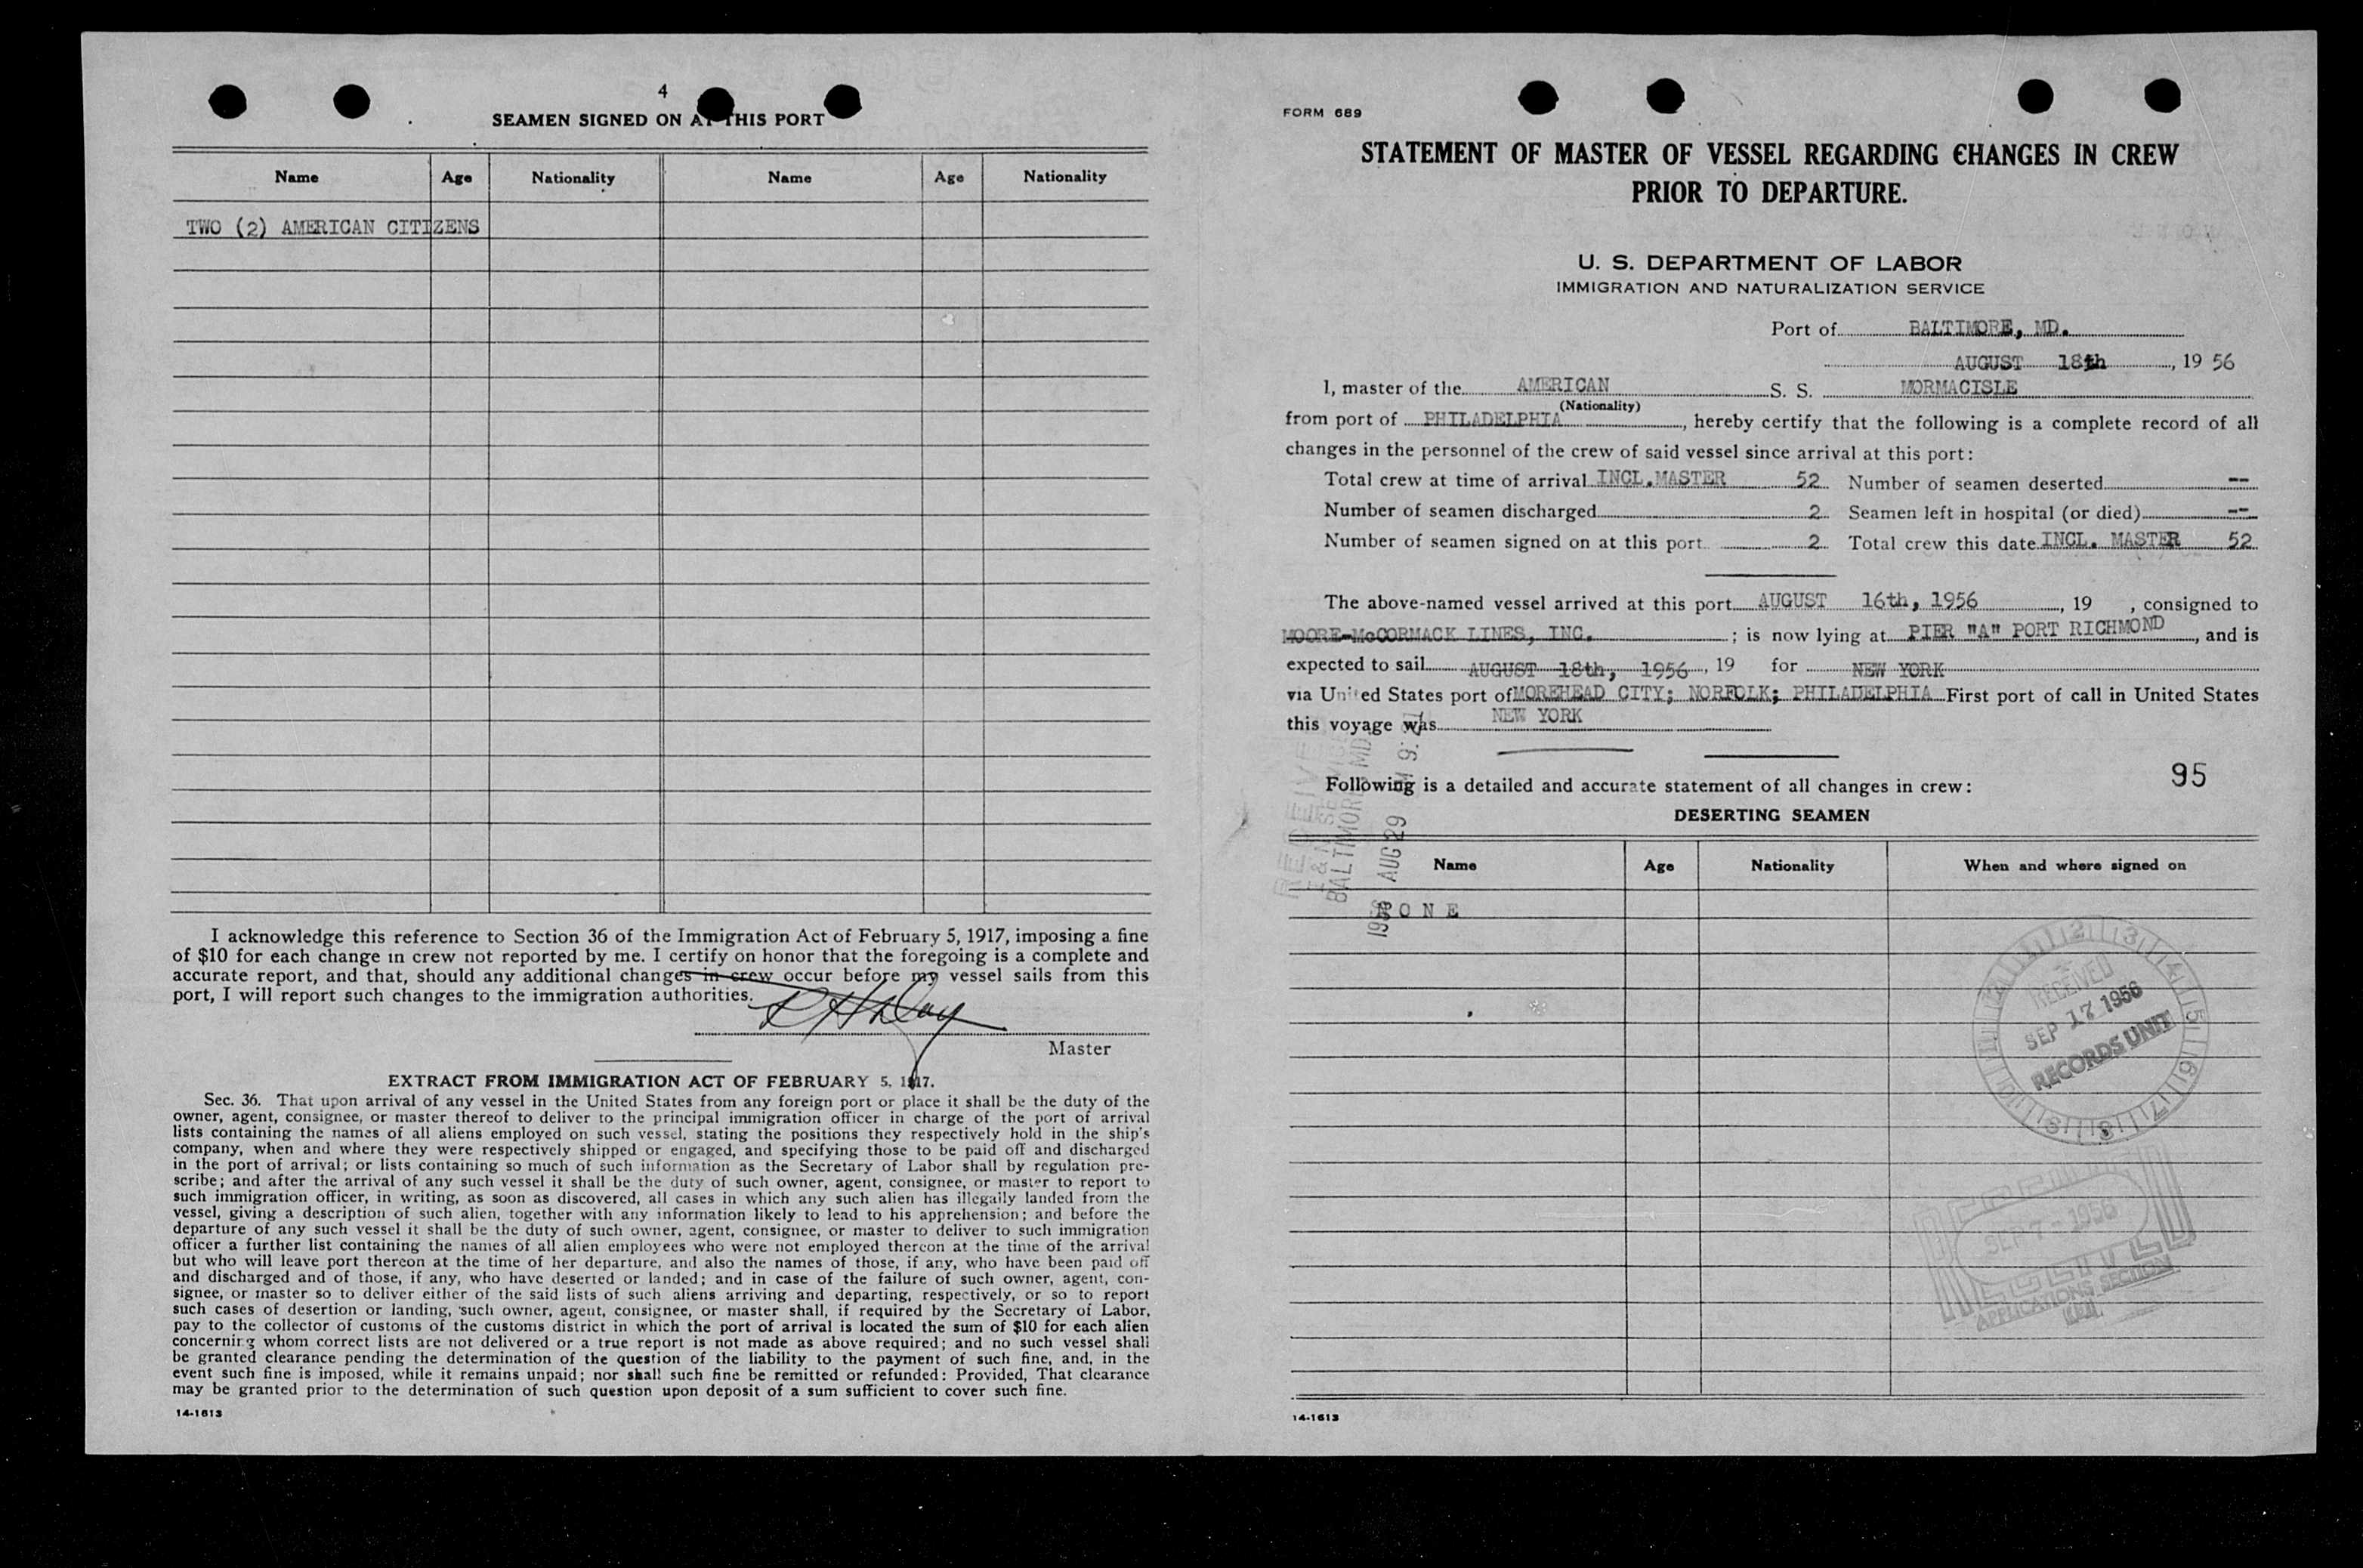 4
SEAMEN SIGNED ON AT THIS PORT
Name Age Nationality Name Age Nationality
TWO (2) AMERICAN CITIZENS
I acknowledge this reference to Section 36 of the Immigration Act of February 5, 1917, imposing a fine
of $10 for each change in crew not reported by me. I certify on honor that the foregoing is a complete and
accurate report, and that, should any additional changes in crew occur before my vessel sails from this
port, I will report such changes to the immigration authorities.
Master
EXTRACT FROM IMMIGRATION ACT OF FEBRUARY 5, 1917.
Sec. 36. That upon arrival of any vessel in the United States from any foreign port or place it shall be the duty of the
owner, agent, consignee, or master thereof to deliver to the principal immigration officer in charge of the port of arrival
lists containing the names of all aliens employed on such vessel, stating the positions they respectively hold in the ship's
company, when and where they were respectively shipped or engaged, and specifying those to be paid off and discharged
in the port of arrival; or lists containing so much of such information as the Secretary of Labor shall by regulation pre-
scribe; and after the arrival of any such vessel it shall be the duty of such owner, agent, consignee, or master to report to
such immigration officer, in writing, as soon as discovered, all cases in which any such alien has illegally landed from the
vessel, giving a description of such alien, together with any information likely to lead to his apprehension; and before the
departure of any such vessel it shall be the duty of such owner, agent, consignee, or master to deliver to such immigration
officer a further list containing the names of all alien employees who were not employed thereon at the time of the arrival
but who will leave port thereon at the time of her departure, and also the names of those, if any, who have been paid off
and discharged and of those, if any, who have deserted or landed; and in case of the failure of such owner, agent, con-
signee, or master so to deliver either of the said lists of such aliens arriving and departing, respectively, or so to report
such cases of desertion or landing, such owner, agent, consignee, or master shall, if required by the Secretary of Labor,
pay to the collector of customs of the customs district in which the port of arrival is located the sum of $10 for each alien
concerning whom correct lists are not delivered or a true report is not made as above required; and no such vessel shall
be granted clearance pending the determination of the question of the liability to the payment of such fine, and, in the
event such fine is imposed, while it remains unpaid; nor shall such fine be remitted or refunded: Provided, That clearance
may be granted prior to the determination of such question upon deposit of a sum sufficient to cover such fine.
14-1613
FORM 689
STATEMENT OF MASTER OF VESSEL REGARDING CHANGES IN CREW
PRIOR TO DEPARTURE.
U. S. DEPARTMENT OF LABOR
IMMIGRATION AND NATURALIZATION SERVICE
Port of BALTIMORE, MD.
AUGUST 18th, 19 56
I, master of the AMERICAN S. S. MORMACISLE
(Nationality)
from port of PHILADELPHIA, hereby certify that the following is a complete record of all
changes in the personnel of the crew of said vessel since arrival at this port:
Total crew at time of arrival INCL. MASTER 52 Number of seamen deserted --
Number of seamen discharged 2 Seamen left in hospital (or died) --
Number of seamen signed on at this port 2 Total crew this date INCL. MASTER 52
The above-named vessel arrived at this port AUGUST 16th, 1956, 19 , consigned to
MOORE-McCORMACK LINES, INC. ; is now lying at PIER "A" PORT RICHMOND, and is
expected to sail AUGUST 18th, 1956, 19 for NEW YORK
via United States port of MOREHEAD CITY; NORFOLK; PHILADELPHIA First port of call in United States
this voyage was NEW YORK
Following is a detailed and accurate statement of all changes in crew:
95
DESERTING SEAMEN
Name Age Nationality When and where signed on
NONE
BALTIMORE MD
1956 AUG 29
RECEIVED
SEP 17 1956
RECORDS UNIT
SEP 7 - 1956
RECEIVED
APPLICATIONS SECTION
14-1613